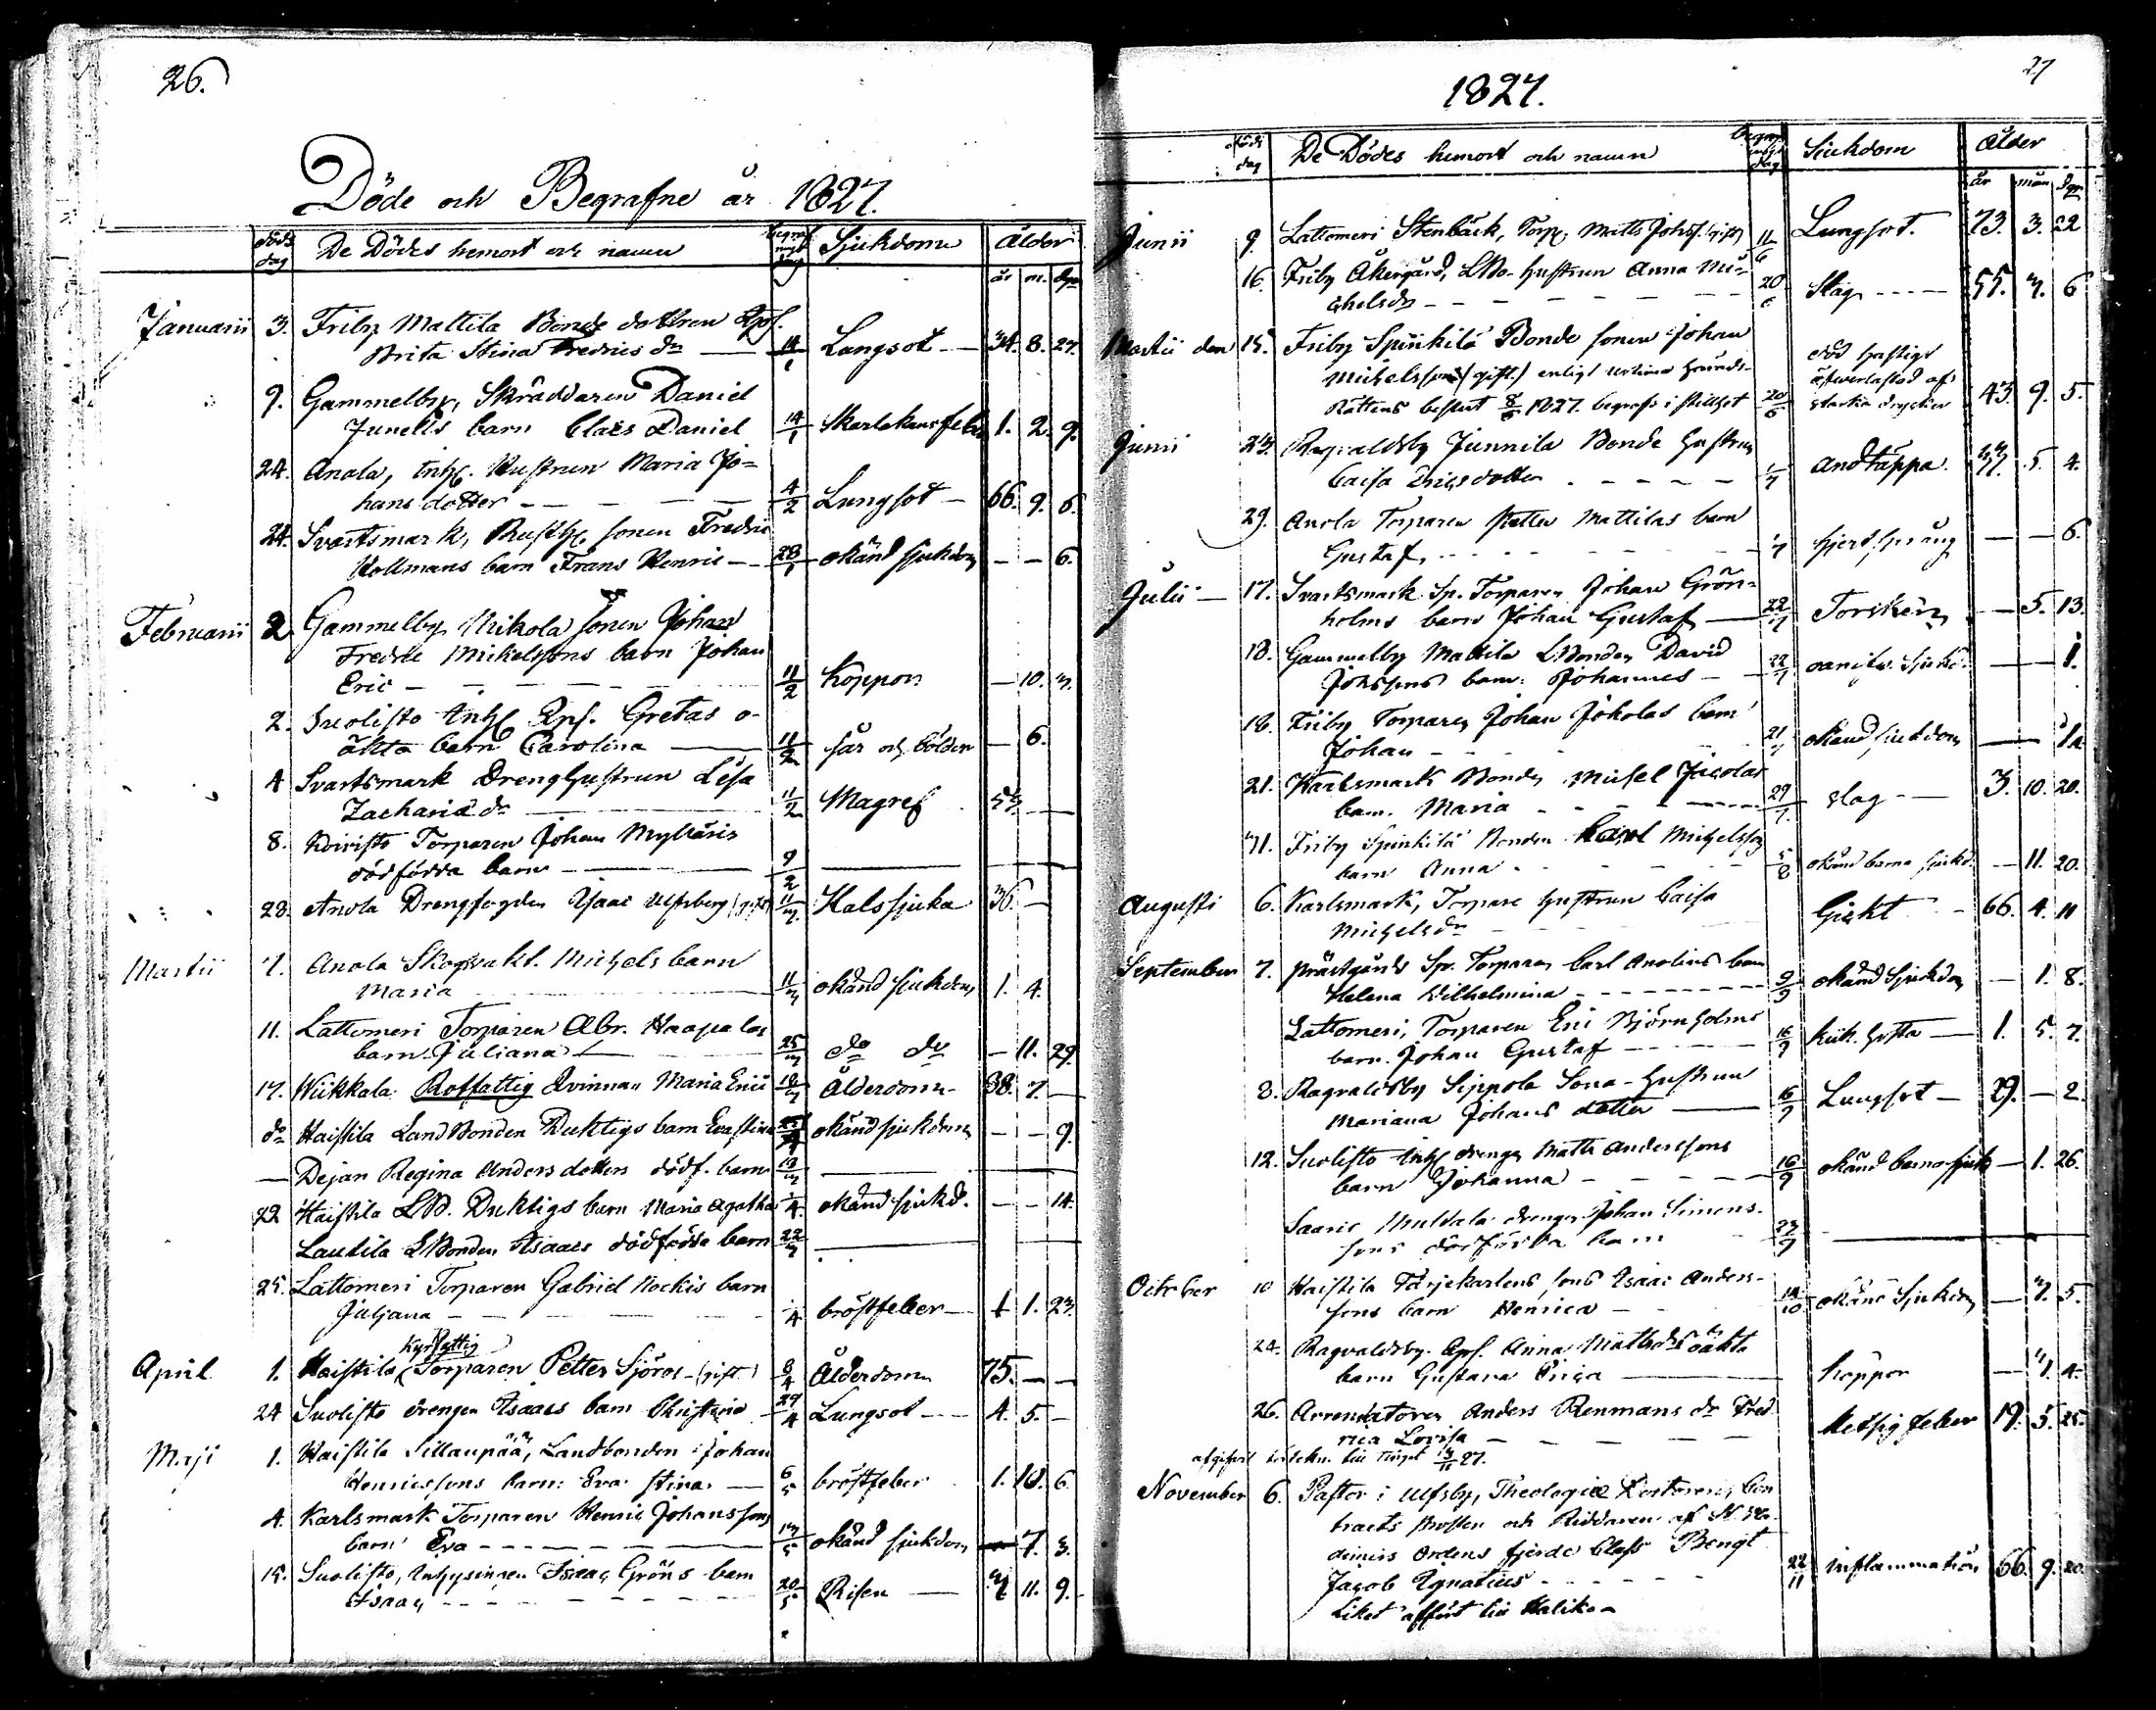 26.
Döde och Begrafne år 1827.
döds dag De Dödes hemort och namn begraf nings dag Sjukdom Ålder
år m. dgr
Januarii 3. Friby Mattila Bonde dottren
Brita Stina Fredrics dr 14/1 Lungsot 34. 8. 27.
9. Gammelby, Skräddaren Daniel
Junells barn Claes Daniel 14/1 Skarlakansfeber 1. 2. 9.
24. Anola, Inhs. Hustrun Maria Jo=
hans dotter 4/2 Lungsot 66. 9. 6.
24. Svartsmark, sonen Fredric
Kollmans barn Frans Henric 28/1 okänd sjukdom - - 6.
Februarii 2 Gammelby Mikola sonen Johan
Fredric Mickelssons barn Johan
Eric 11/2 Koppor - 10. 3.
2. Suolisto Inhs Gretas o-
äkta barn Carolina 11/2 sår och bölder - 6.
4 Svartsmark Dreng Hustrun Lisa
Zachariæ dr 11/2 Magref 53. -
8. Koivisto Torparen Johan Mylläris
dödfödda barn 9/2
28. Anola Drengfogden Isaac Ulfsberg (gift) 11/3 Halssjuka 36. -
Martii 7. Anola Skogvakt. Michels barn
Maria 11/3 okänd sjukdom 1. 4.
11. Lattomeri Torparen Abr. Haapalas
barn Juliana 25/3 do do - 11. 29.
17. Wiikkala Rotfattig Qvinnan Maria Erici 18/3 Ålderdom 88. 7. -
do Haistila LandBonden Duktigs barn Eva Stina okänd sjukdom - - 9.
- Dejan Regina Anders dotters dödf. barn 18/3
22 Haistila LB. Duktigs barn Maria Agatha 1/4 okänd sjukd. - - 14.
Lautila LBonden Isaacs dödfödda barn 22/3
25. Lattomeri Torparen Gabriel Nockis barn
Juliana 1/4 bröstfeber 1 1. 23.
Kyrfattig
April 1. Haistila Torparen Petter Sjöros (gift) 8/4 Ålderdom 75. - -
24 Suolisto drengen Isaacs barn Christina 29/4 Lungsot 4. 5. -
Maji 1. Haistila Sillanpää, Landbonden Johan
Henricssons barn Eva Stina 6/5 bröstfeber 1. 10. 6.
4. Karlsmark Torparen Henric Johanssons
barn Eva 13/5 okänd sjukdom 7. 3.
15. Suolisto, Inhysingen Isaac Gröns barn
Isaac 20/5 Risen 11. 9.
27
1827.
döds dag De Dödes hemort och namn begraf nings dag Sjukdom Ålder
år mån dgr
Junii 9. Lattomeri Stenback, Torp. Matts Johss. (gift) 11/6 Lungsot. 73. 3. 22
16. Friby Åkergård, LBo. Hustrun Anna Mi=
chelsdr 20/6 Slag 55. 7. 6
Martii den 15. Friby Spinkilä Bonde sonen Johan död hastigt
Michelsson (gift.) enligt Härads- öfverlastad af
Rättens beslut 8/5 1827. begrafs i stillhet 20/5 starka drycker 43. 9. 5.
Junii 23. Ragvaldsby Junnila Bonde Hustrun
Caisa Ericsdotter 1/7 Andtäppa 77. 5. 4.
29. Anola Torparen Petter Mattilas barn
Gustaf 1/7 hjertsprång - - 6.
Julii 17. Svartsmark Sp. Torparen Johan Grön=
holms barn Johan Gustaf 22/7 Torsken - 5. 13.
18. Gammelby Mattila LBonden David
Johssons barn Johannes 22/7 1.
18. Friby Torparen Johan Jokolas barn
Johan 21/7 okänd sjukdom
21. Karlsmark Bonden Michel Jacolas
barn Maria 29/7 slag 3. 10. 20.
31. Friby Spinkilä Bonden Karl Michelsson
barn Anna 5/8 okänd barna sjukd. - 11. 20.
Augusti 6. Karlsmark, Torpare Hustrun Caisa
Michelsdr Gickt 66. 4. 11
September 7. Prästgårds Sp. Torparen Carl Anolins barn
Helena Wilhelmina 9/9 okänd Sjukdom - 1. 8.
Lattomeri, Torparen Eric Björnholms
barn Johan Gustaf 16/9 kikhosta 1. 5. 7.
8. Ragvaldsby Sippola Sona-Hustrun
Mariana Johans dotter 16/9 Lungsot 29. - 2.
12. Suolisto Inhs drengen Matts Anderssons
barn Johanna 16/9 okänd barnasjuk - 1. 26.
Saaris Muldala drengen Johan Simons-
sons dödfödda barn 23/9
October 10 Haistila Färjekarlens sons Isaac Anders-
sons barn Henrica 14/10 okänd Sjukdom - 7. 5.
24. Ragvaldsby Anna Mattsdrs oäkta
barn Gustava Erica koppor - 4.
26. Arrendatoren Anders Renmans dr Fred
rica Lovisa hetsig feber 19. 5. 25.
till Tinget 27.
November 6. Pastor i Ulfsby, Theologiæ Doctoren, Con
tracts Prosten och Riddaren af St Wla-
dimirs Ordens fjerde Class Bengt
Jacob Ignatius 22/11 inflammation 66. 9. 20.
Liket affört till Halikko